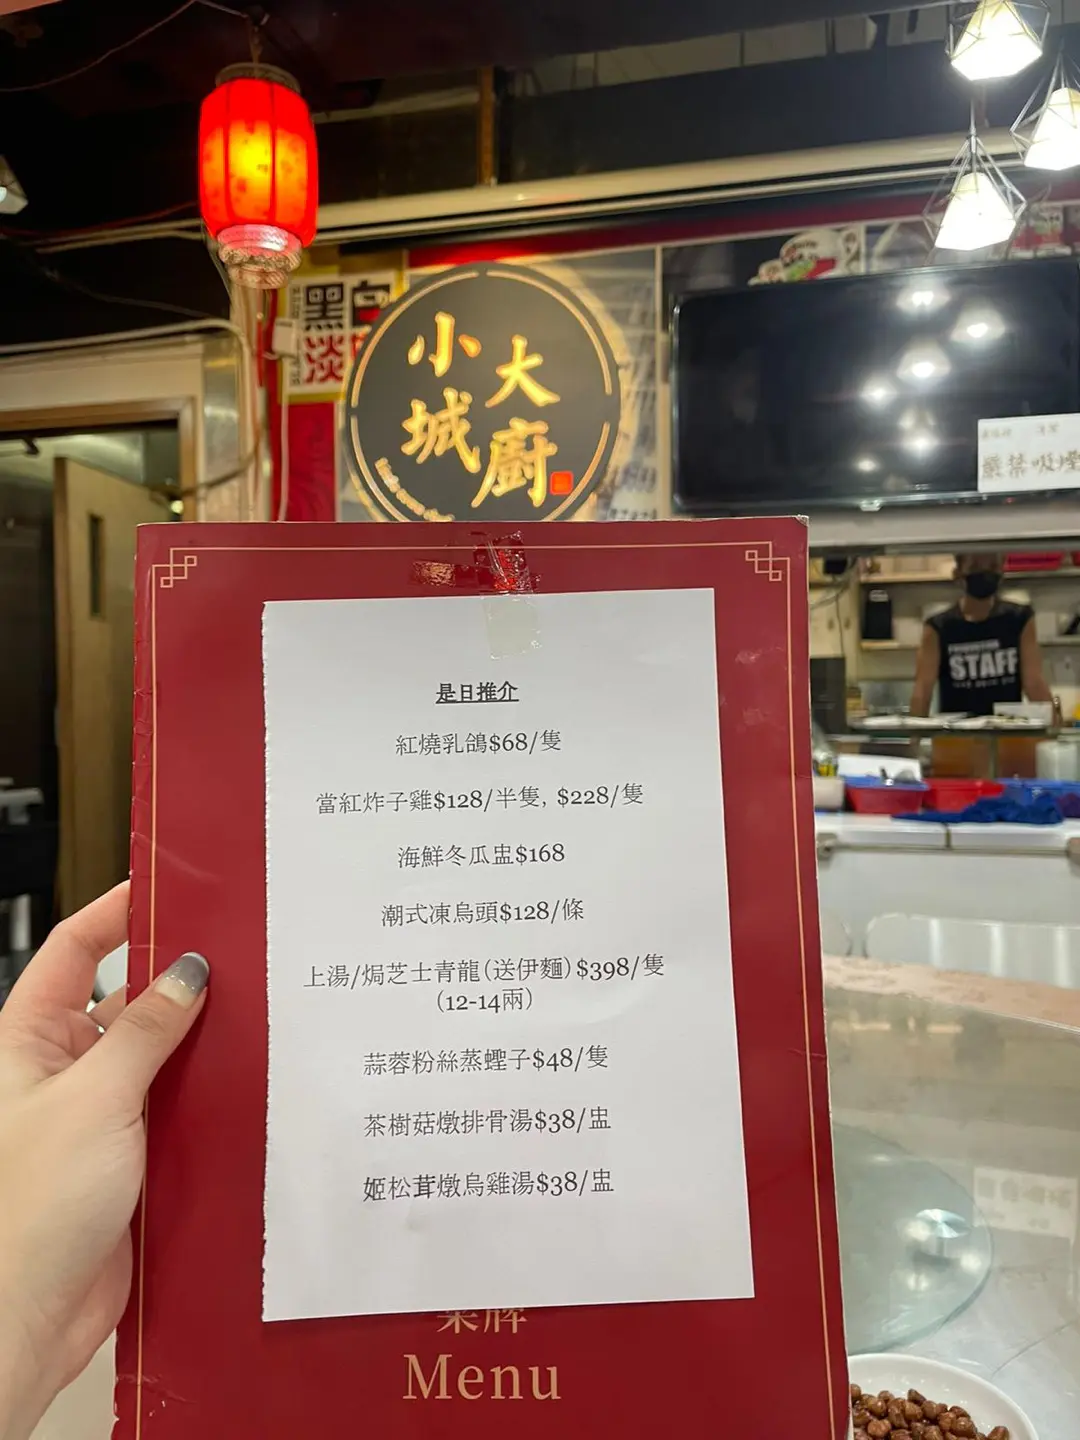 黑白
淡
小城
大廚
嚴禁吸煙
STAFF
是日推介
紅燒乳鴿$68/隻
當紅炸子雞$128/半隻, $228/隻
海鮮冬瓜盅$168
潮式凍烏頭$128/條
上湯/焗芝士青龍(送伊麵)$398/隻
(12-14兩)
蒜蓉粉絲蒸蟶子$48/隻
茶樹菇燉排骨湯$38/盅
姬松茸燉烏雞湯$38/盅
菜牌
Menu